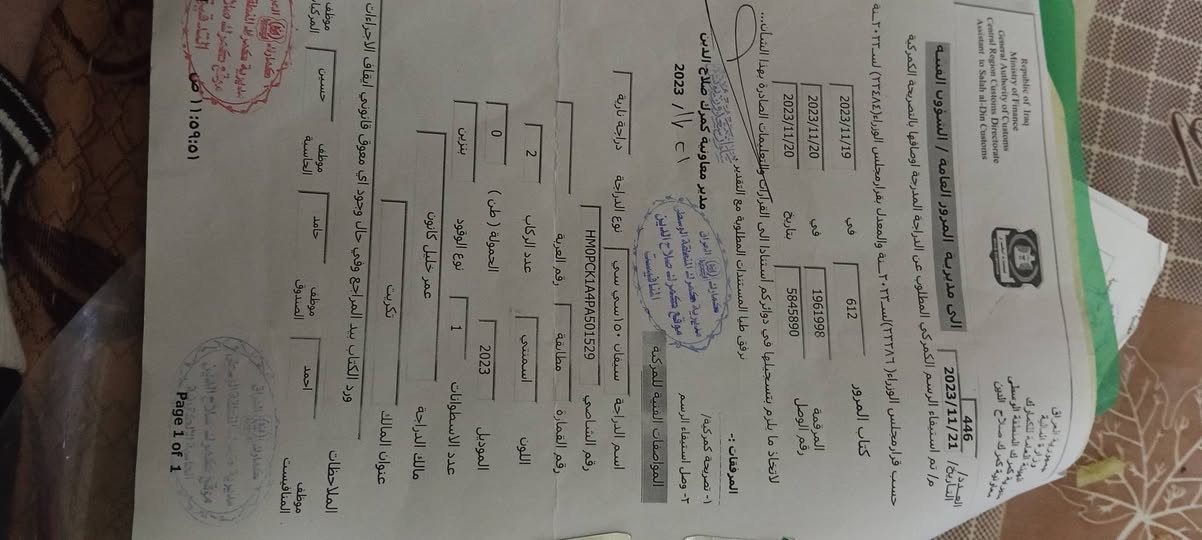 Republic of Iraq
Ministry of Finance
General Authority of Customs
Central Region Customs Directorate
Assistant to Salah al-Din Customs
جمهورية العراق
وزارة المالية
الهيئة العامة للكمارك
مديرية كمرك المنطقة الوسطى
معاونية كمرك صلاح الدين
العدد/ 446
التاريخ/ 2023/11/21
الى مديرية المرور العامة / الشؤون الفنية
م/ تم استيفاء الرسم الكمركي المطلوب عن الدراجة المدرجة اوصافها بالتصريحة الكمركية
حسب قرار مجلس الوزراء( ٢٣٢٨٦)لسـ٢٠٢٣ـنة والمعدل بقرار مجلس الوزراء(٢٣٤٨٤) لسـ٢٠٢٣ـنة
كتاب المرور 612 في 2023/11/19
المرقمة 1961998 في 2023/11/20
رقم الوصل 5845890 بتاريخ 2023/11/20
لاتخاذ ما يلزم بتسجيلها في دوائركم استنادا الى القرارات والتعليمات الصادرة بهذا الشأن...
نرفق طيا المستندات المطلوبة مع التقدير
المرفقات :-
١- تصريحة كمركية/
٢- وصل استيفاء الرسم
مدير معاونية كمرك صلاح الدين
2023 / ١١ / ٢١
المواصفات الفنية للمركبة
اسم الدراجة سيفان ١٥٠ سي سي نوع الدراجة دراجة نارية
رقم الشاصي HM0PCK1A4PA501529
رقم القمارة مطابقة رقم العربة
اللون اسمنتي عدد الركاب 2
الموديل 2023 الحمولة ( طن) 0
عدد الاسطوانات 1 نوع الوقود بنزين
مالك الدراجة عمر خليل كانون
عنوان المالك تكريت
الملاحظات ورد الكتاب بيد المراجع وفي حال وجود اي معوق قانوني ايقاف الاجراءات
موظف المنافيست احمد موظف الصندوق حامد موظف الحاسبة حسين موظف المركبات
Page 1 of 1
١١:٥٩:٥١ ص